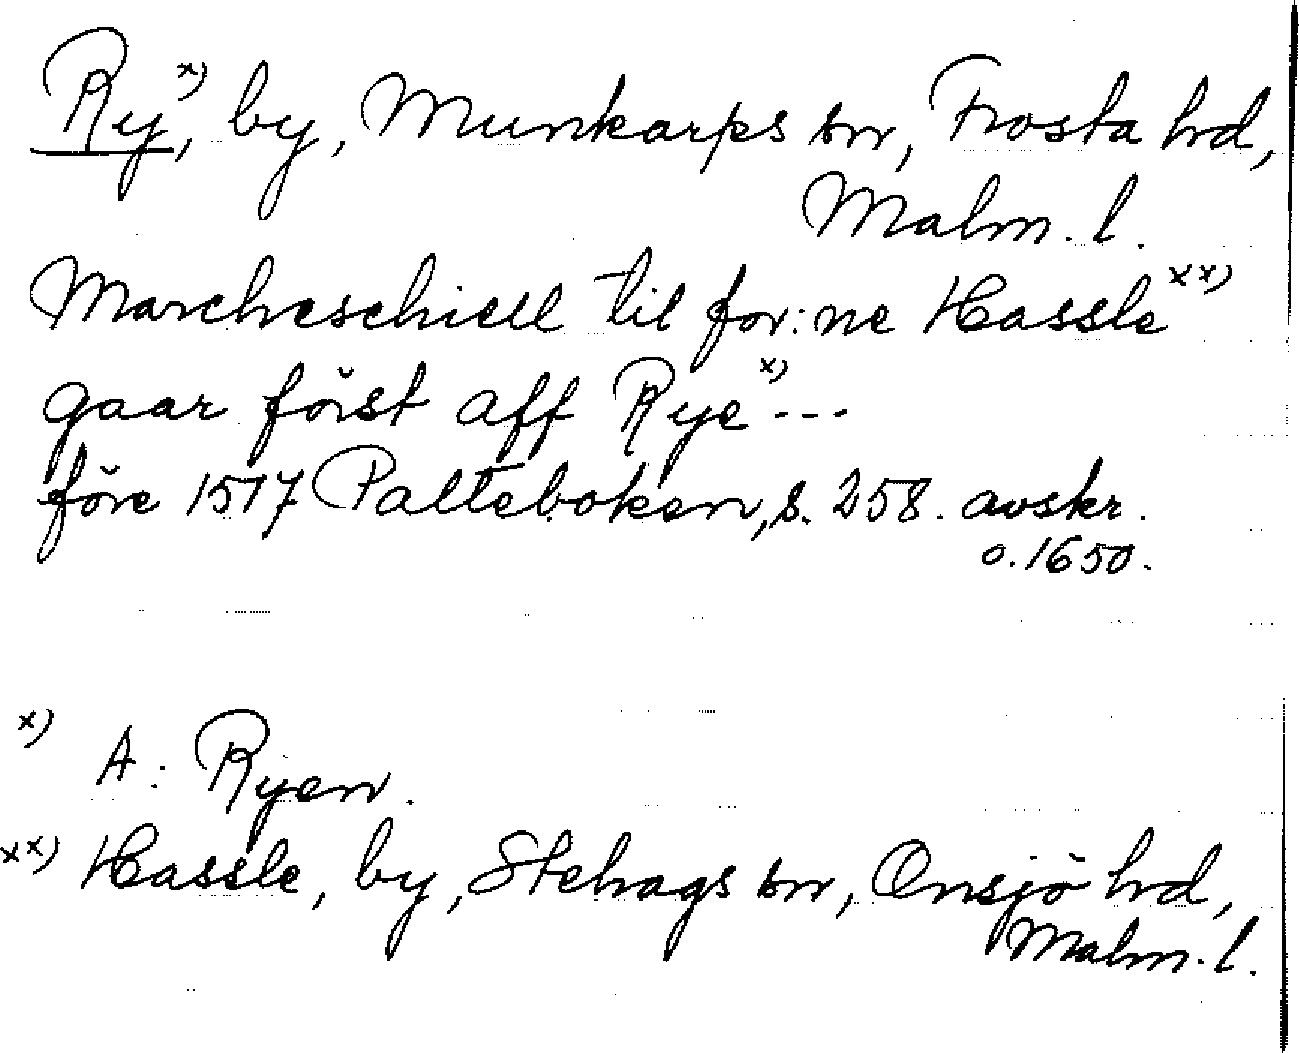 Ry x), by, Munkarps sn, Frosta hd,
Malm. l.
Marcheschiell til for:ne Hassle xx)
gaar först aff Rye x) ---
före 1517 Palteboken, s. 258. avskr.
o. 1650.
x) A: Ryen.
xx) Hassle, by, Stehags sn, Onsjö hd,
Malm. l.